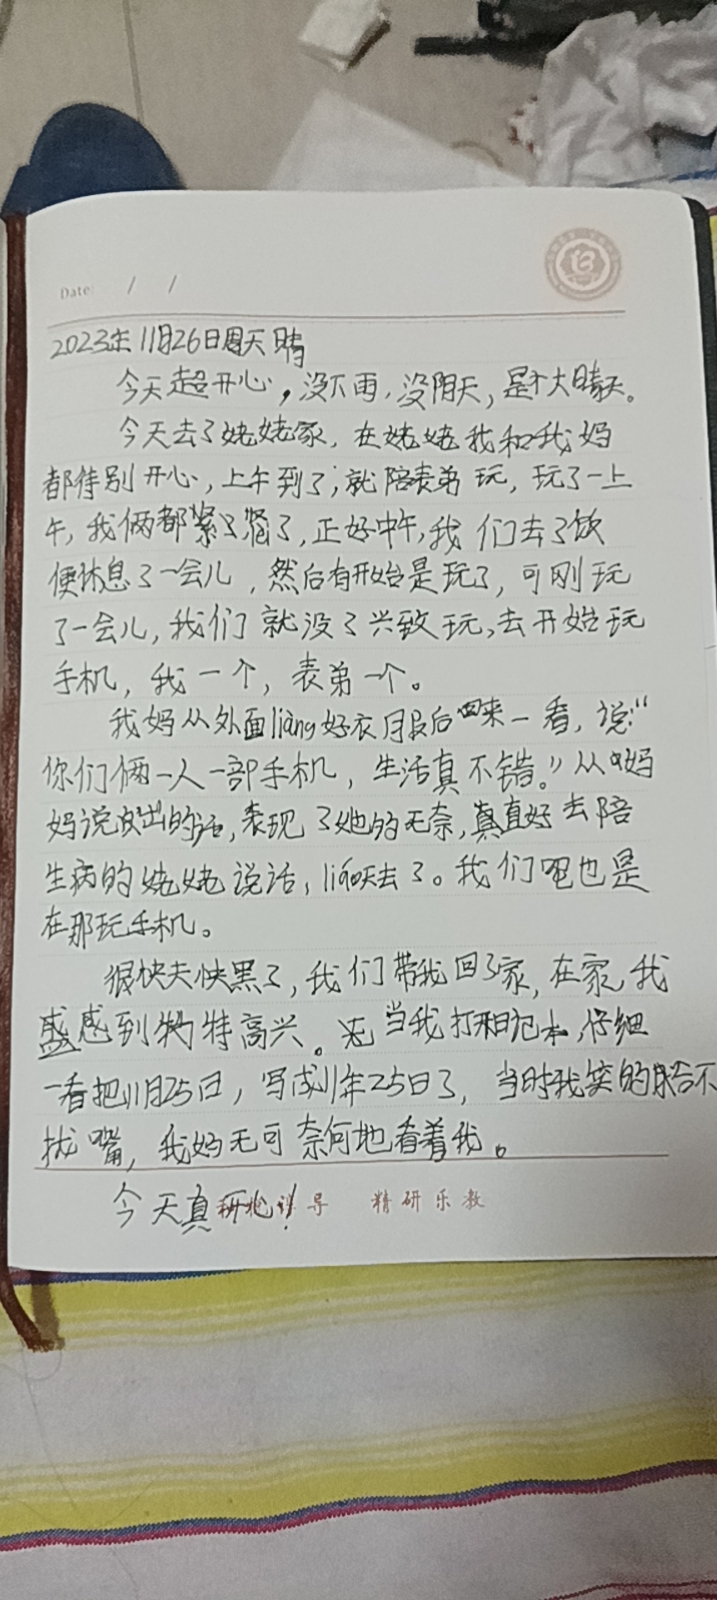 Date: / /
2023年11月26日周天 晴
今天超开心，没下雨，没阴天，是个大晴天。
今天去了姥姥家，在姥姥我和我妈
都特别开心，上午到了，就陪表弟玩，玩了一上
午，我俩都累了，正好中午，我们去了饮
便休息了一会儿，然后有开始是玩了，可刚玩
了一会儿，我们就没了兴致玩，去开始玩
手机，我一个，表弟一个。
我妈从外面liàng好衣服后回来一看，说：“
你们俩一人一部手机，生活真不错。”从妈
妈说出的话，表现了她的无奈，真直好去陪
生病的姥姥说话，liáo天去了。我们吧也是
在那玩手机。
很快天快黑了，我们带我回了家，在家我
感到特高兴。当我打开日记本，仔细
一看把11月25日，写成11年25日了，当时我笑的合不
拢嘴，我妈无可奈何地看着我。
今天真开心！
导 精研乐教